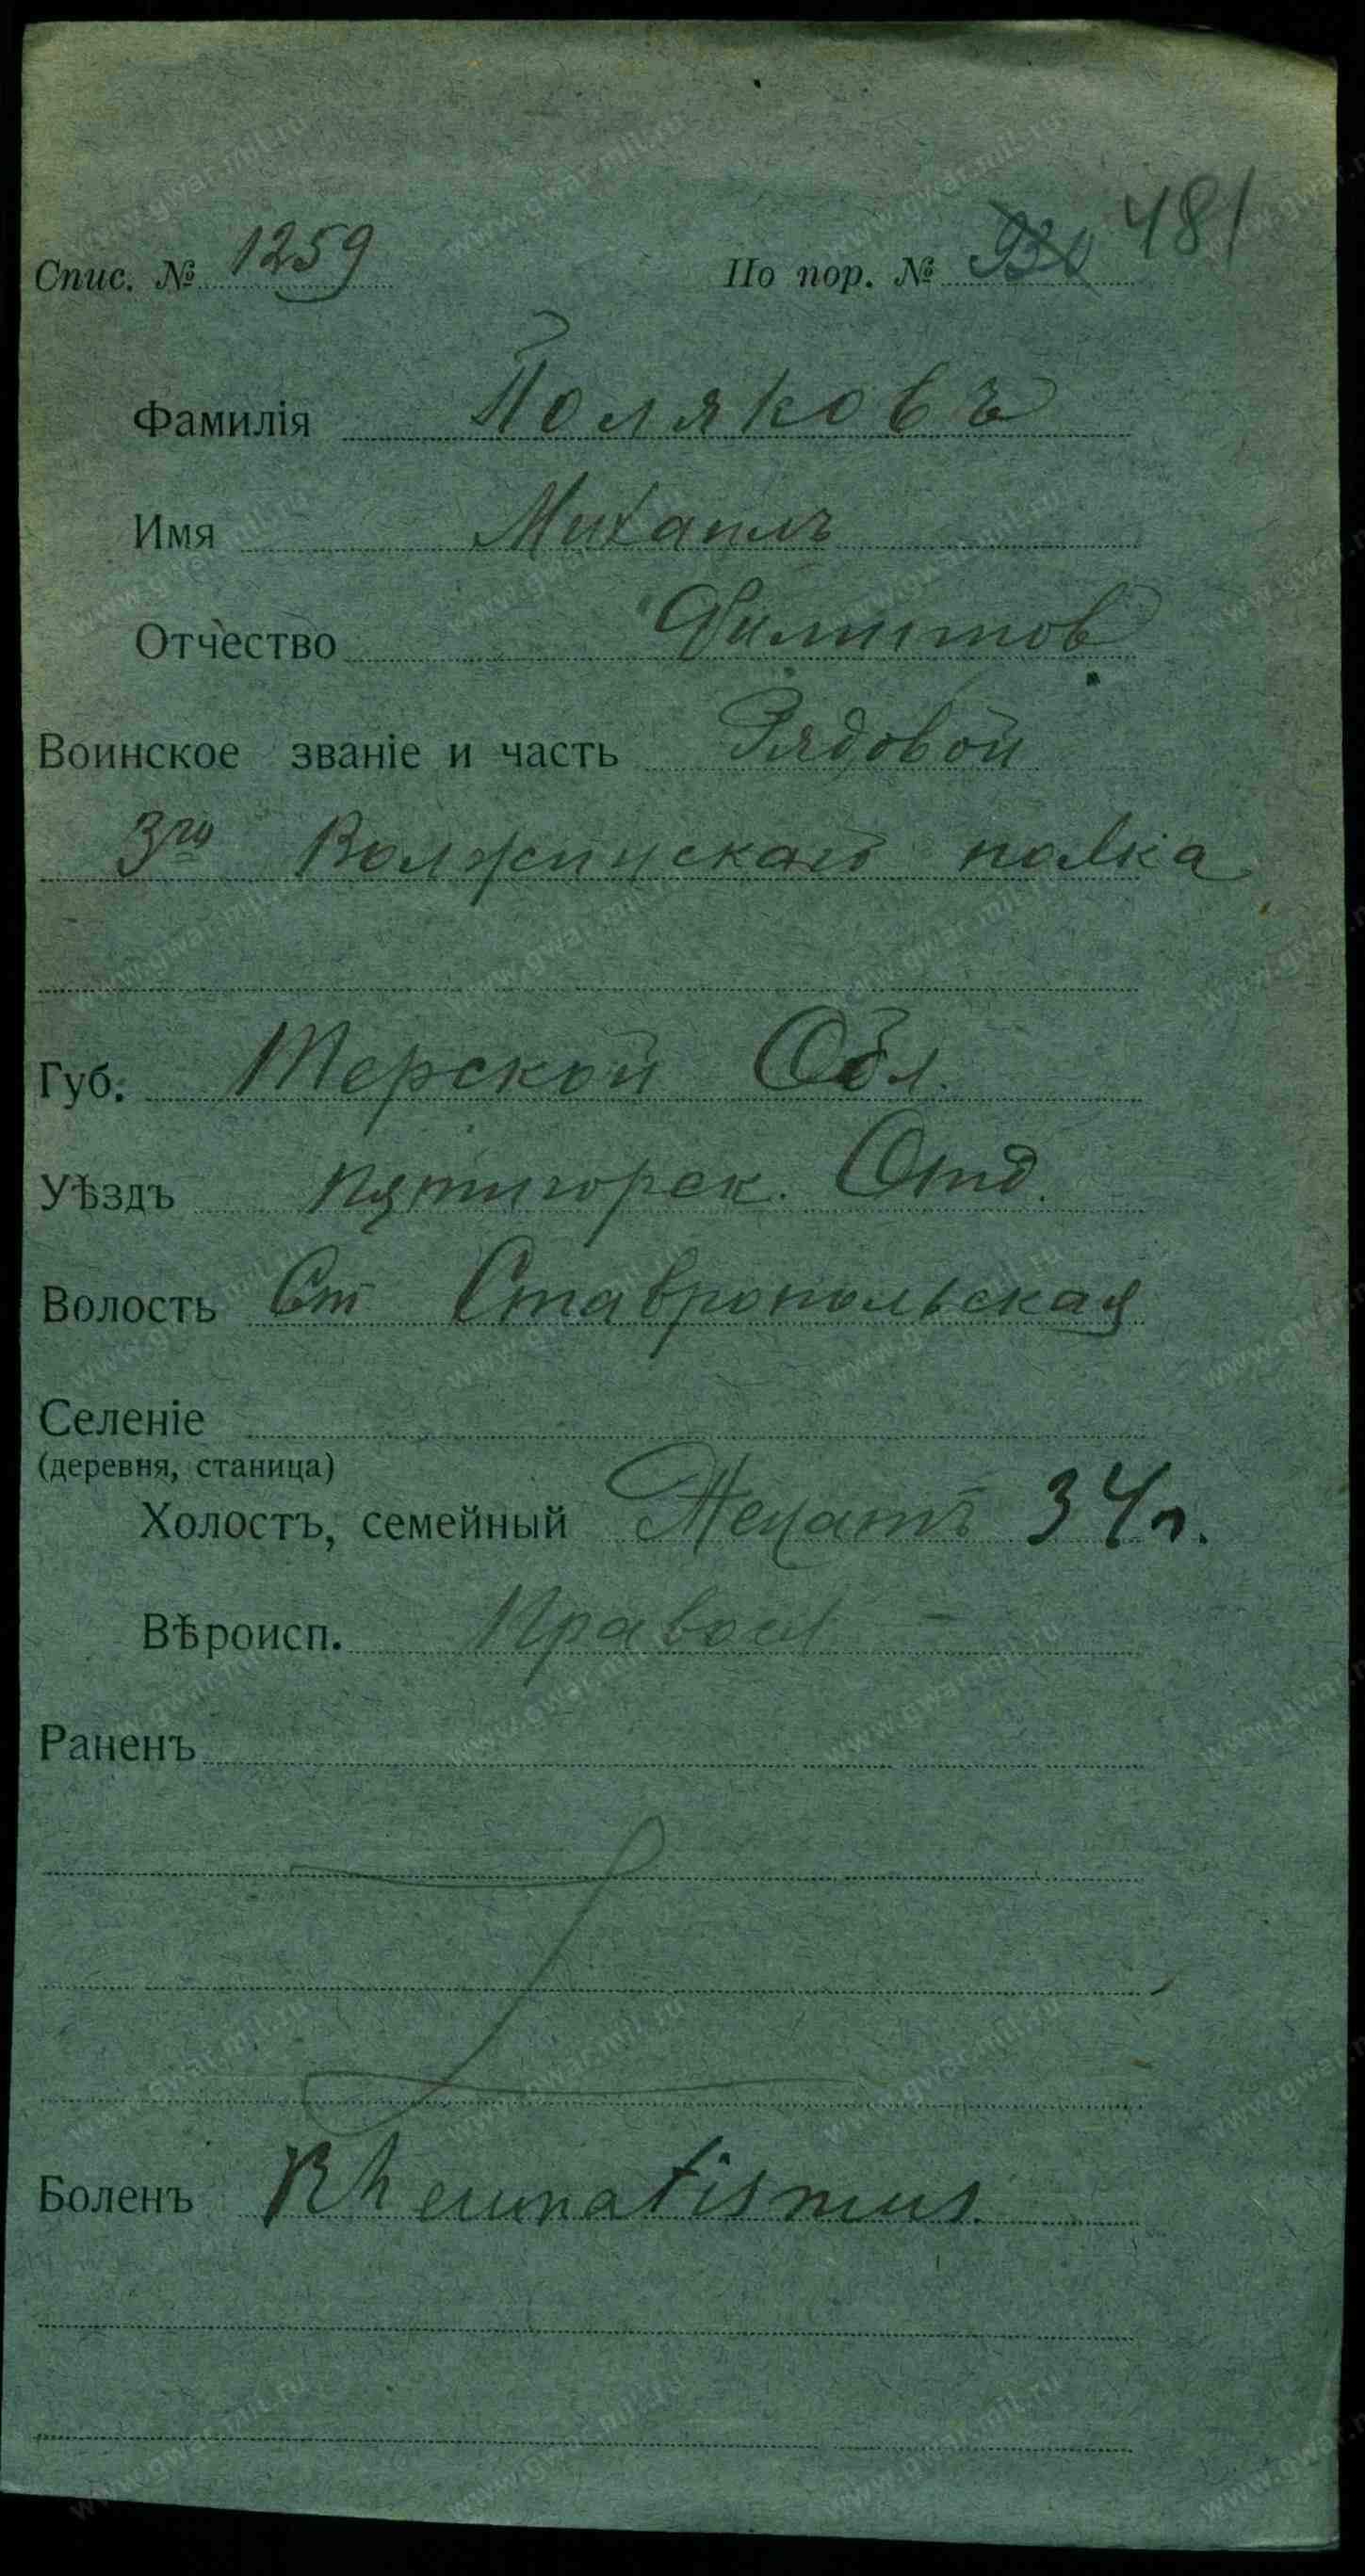 Спис. № 1259 По пор. № 481
Фамилія Поляковъ
Имя Михаилъ
Отчество Филиппов
Воинское званіе и часть Рядовой
3го Волжинскаго полка
Губ. Терской Обл.
Уѣздъ пятигорск. Отд.
Волость Ст Ставропольская
Селеніе
(деревня, станица)
Холостъ, семейный Женатъ 34 л.
Вѣроисп. Правосл
Раненъ
Боленъ Rheumatismus.